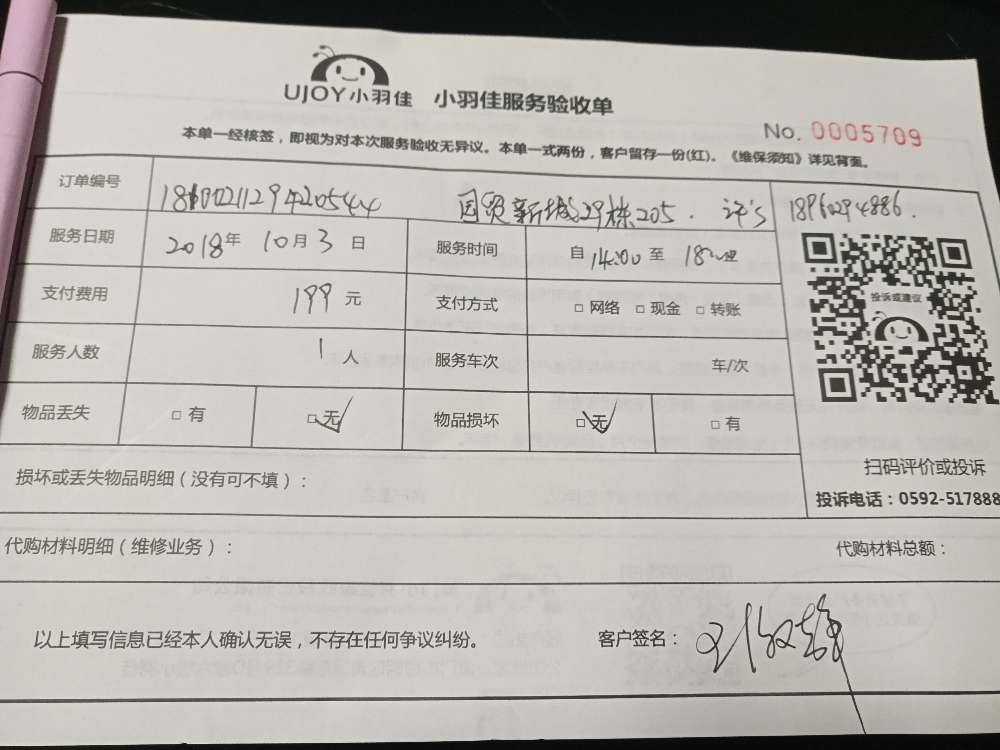 UJOY小羽佳 小羽佳服务验收单
No. 0005709
本单一经核签，即视为对本次服务验收无异议。本单一式两份，客户留存一份(红)。《维保须知》详见背面。
订单编号 国贸新城29栋205. 许's 18960294886.
服务日期 2018年 10月 3 日 服务时间 自 14:00 至
投诉或建议
支付费用 199 元 支付方式 □ 网络 □ 现金 □ 转账
服务人数 1 人 服务车次 车/次
物品丢失 □ 有 □ 无 ✓ 物品损坏 □ 无 ✓ □ 有
扫码评价或投诉
损坏或丢失物品明细（没有可不填）：
投诉电话：0592-517888
代购材料明细（维修业务）： 代购材料总额：
以上填写信息已经本人确认无误，不存在任何争议纠纷。 客户签名：